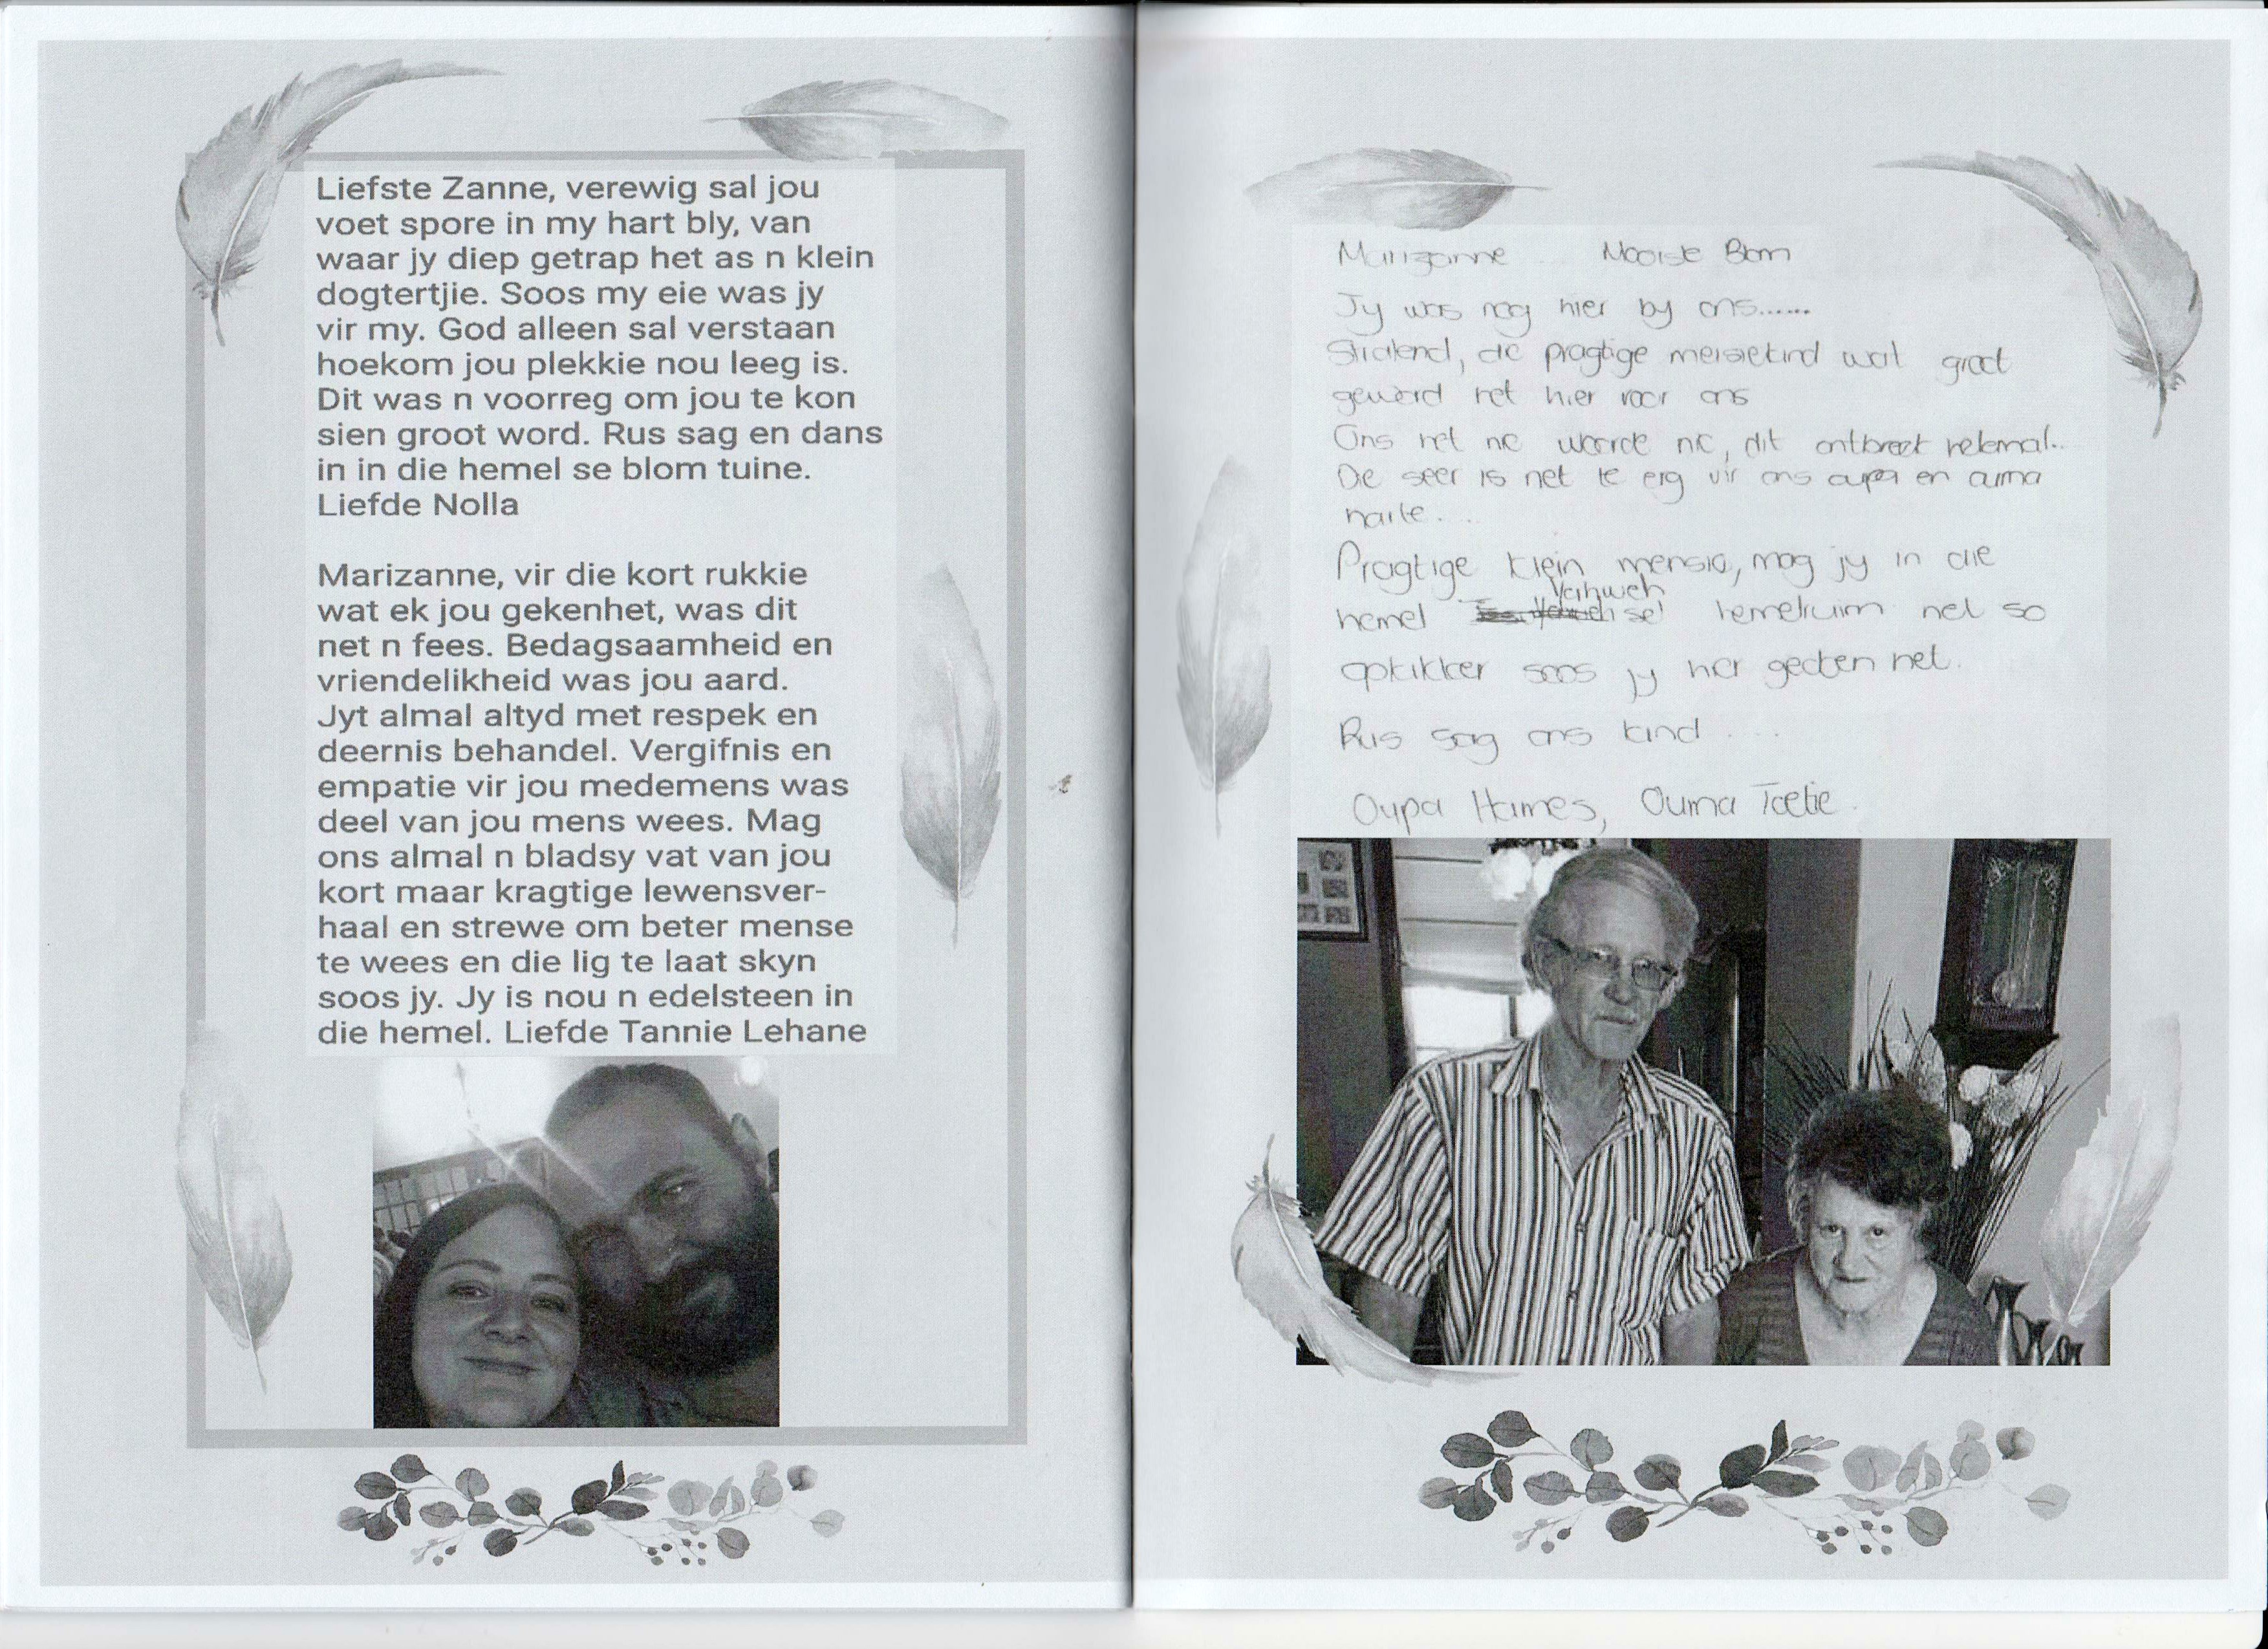 Liefste Zanne, verewig sal jou
voet spore in my hart bly, van
waar jy diep getrap het as n klein
dogtertjie. Soos my eie was jy
vir my. God alleen sal verstaan
hoekom jou plekkie nou leeg is.
Dit was n voorreg om jou te kon
sien groot word. Rus sag en dans
in in die hemel se blom tuine.
Liefde Nolla
Marizanne, vir die kort rukkie
wat ek jou gekenhet, was dit
net n fees. Bedagsaamheid en
vriendelikheid was jou aard.
Jyt almal altyd met respek en
deernis behandel. Vergifnis en
empatie vir jou medemens was
deel van jou mens wees. Mag
ons almal n bladsy vat van jou
kort maar kragtige lewensver-
haal en strewe om beter mense
te wees en die lig te laat skyn
soos jy. Jy is nou n edelsteen in
die hemel. Liefde Tannie Lehane
Marizanne .. Mooiste Blom
Jy was nog hier by ons......
Stralend, die pragtige meisiekind wat groot
geword het hier voor ons
Ons het nie woorde nie, dit ontbreek helemal..
Die seer is net te erg vir ons oupa en ouma
harte....
Pragtige klein mensie, mog jy in die
hemel Yahweh se hemelruim net so
opkikker soos jy hier gedoen het.
Rus sag ons kind ....
Oupa Hannes, Ouma Toetie.